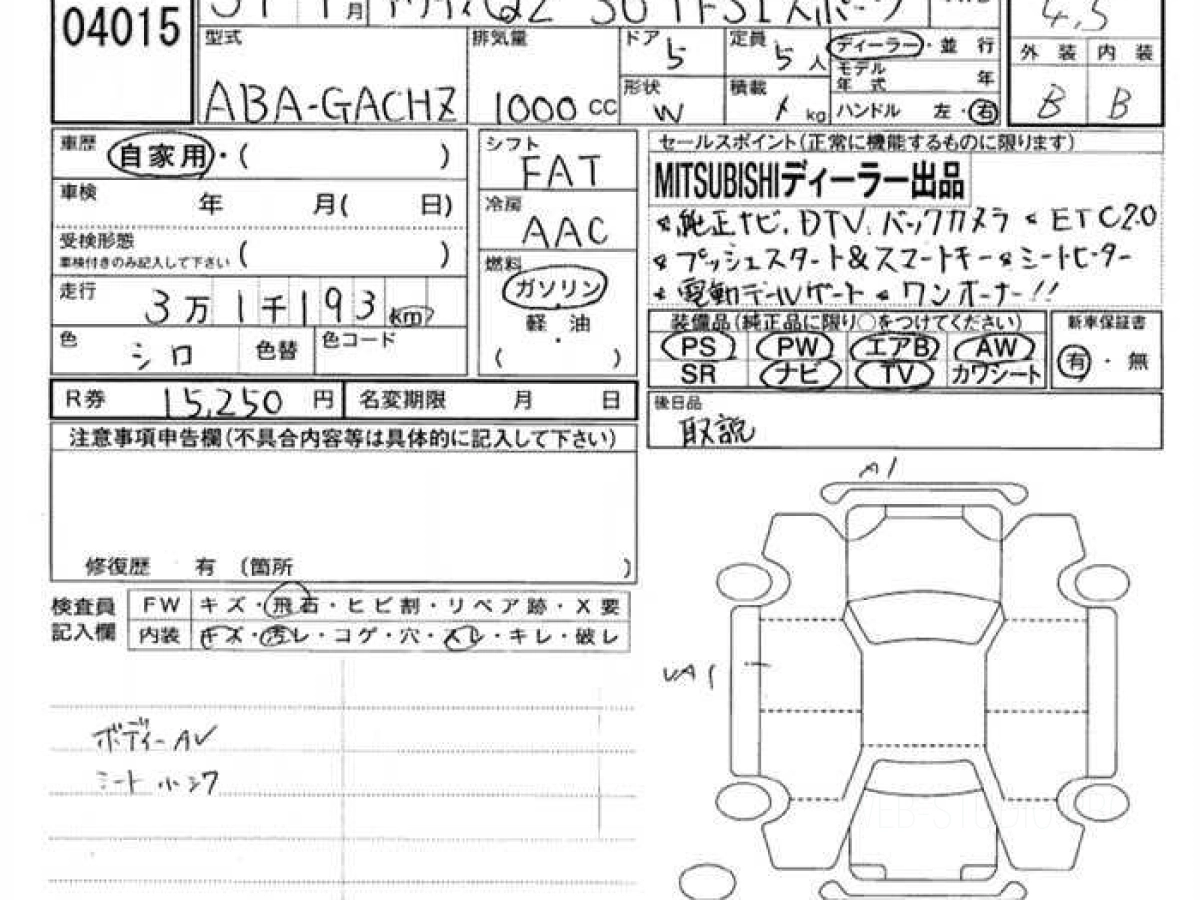 04015
31 1月 アウディQ2 30 TFSI スポーツ
4.5
型式 ABA-GACHZ
排気量 1000 CC
ドア 5 定員 5人
形状 W 積載 kg
ディーラー・並行
モデル年式 年
ハンドル 左・右
外装 内装
B B
車歴 自家用・( )
車検 年 月( 日)
受検形態 車検付きのみ記入して下さい ( )
走行 3万1千193 km
色 シロ 色替 色コード
シフト FAT
冷房 AAC
燃料 ガソリン
軽・油
( )
セールスポイント(正常に機能するものに限ります)
MITSUBISHIディーラー出品
*純正ナビ.DTV.バックカメラ *ETC2.0
*プッシュスタート&スマートキー*シートヒーター
*電動テールゲート *ワンオーナー!!
装備品(純正品に限り○をつけてください)
PS PW エアB AW
SR ナビ TV カワシート
新車保証書
有・無
R券 15,250 円 名変期限 月 日
後日品
取説
注意事項申告欄(不具合内容等は具体的に記入して下さい)
修復歴 有 (箇所 )
検査員記入欄
FW キズ・飛石・ヒビ割・リペア跡・X要
内装 キズ・汚レ・コゲ・穴・スレ・キレ・破レ
A1
UA1
ボディーAU
シート小シワ